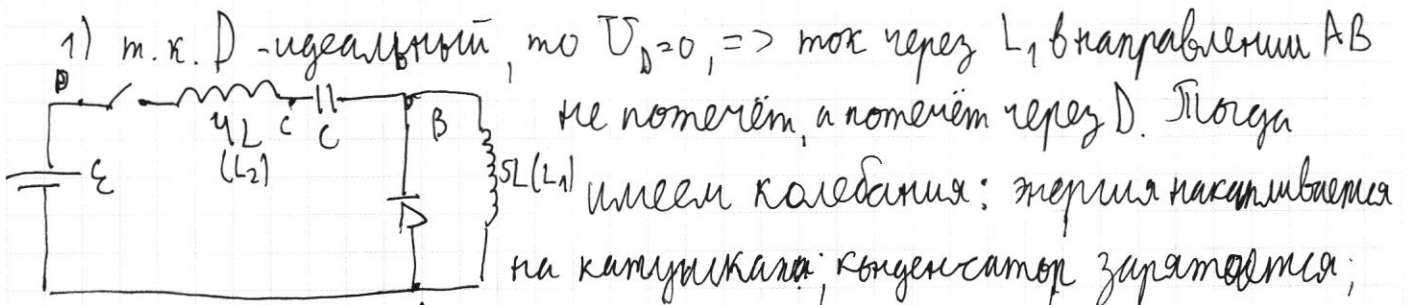 1) т.к. D - идеальный, то U_D=0, => ток через L₁ в направлении AB
не потечёт, а потечёт через D. Тогда
имеем колебания: энергия накапливается
на катушках; конденсатор заряжается;
D
4L
(L₂)
C
C
B
5L(L₁)
ε
D